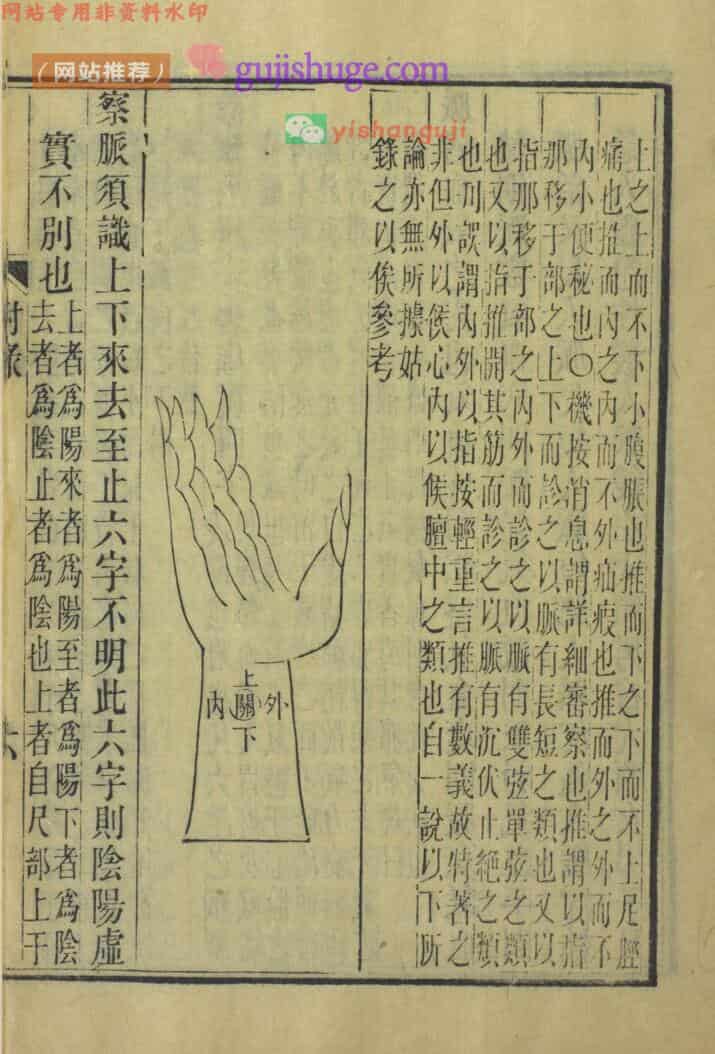 网站专用非资料水印
(网站推荐)
gujishuge.com
yishanguji
上之上而不下小腹脹也推而下之下而不上足脛
痛也推而內之內而不外疝瘕也推而外之外而不
內小便秘也○機按消息謂詳細審察也推謂以指
那移于部之上下而診之以脈有長短之類也又以
指那移于部之內外而診之以脈有雙弦單弦之類
也又以指推開其筋而診之以脈有沉伏止絶之類
也刊誤謂內外以指按輕重言推有數義故特著之
非但外以候心內以候膻中之類也自一說以下所
論亦無所據姑
錄之以俟參考
上
內關外
下
察脈須識上下來去至止六字不明此六字則陰陽虛
實不別也
上者爲陽來者爲陽至者爲陽下者爲陰
去者爲陰止者爲陰也上者自尺部上于
附录
六